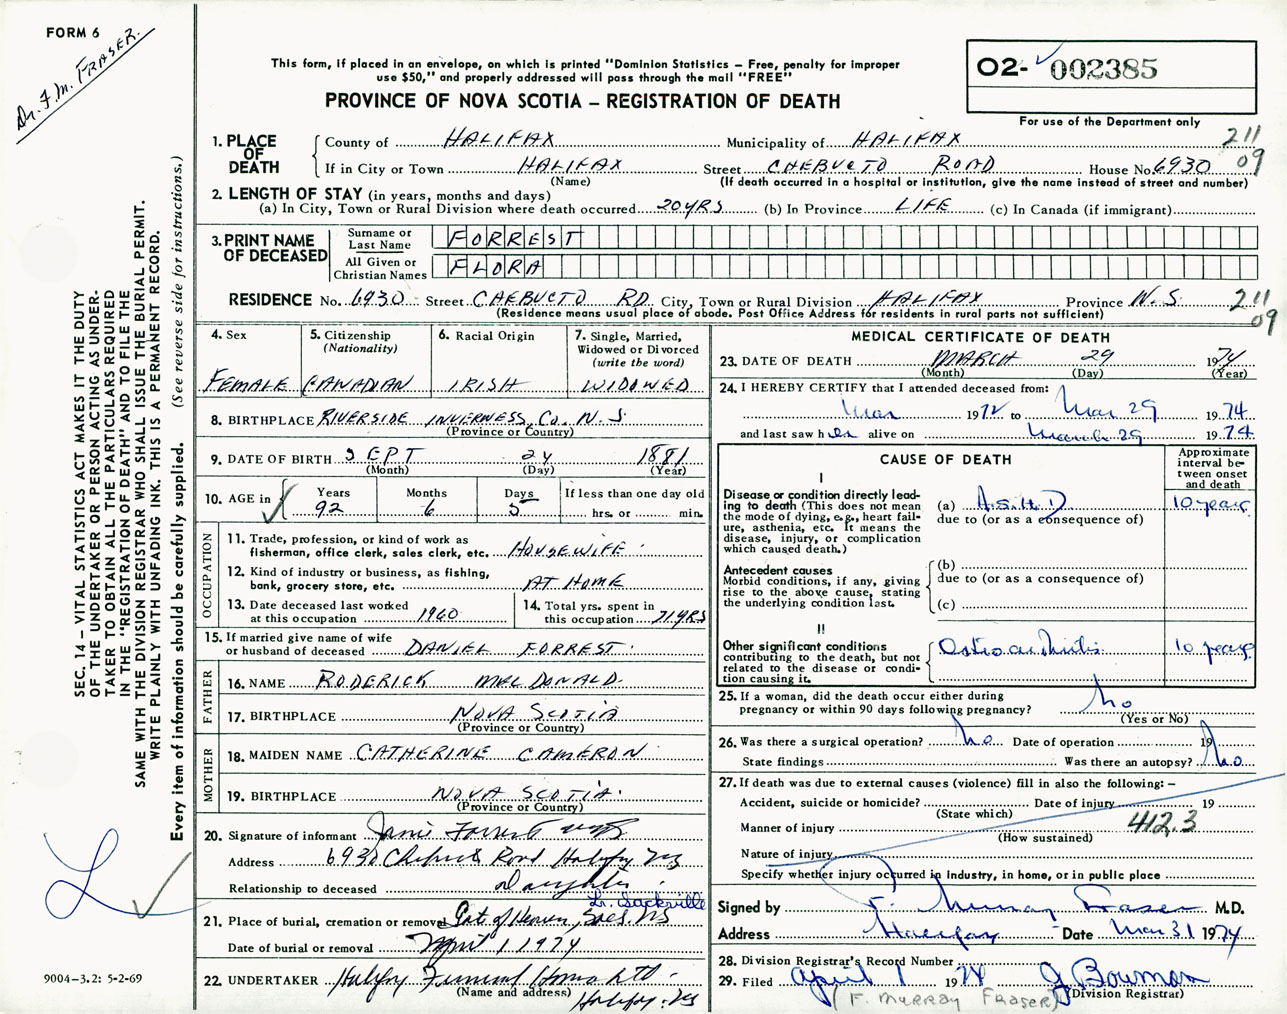 FORM 6
Dr. F. M. FRASER.
This form, if placed in an envelope, on which is printed "Dominion Statistics – Free, penalty for improper
use $50," and properly addressed will pass through the mail "FREE"
PROVINCE OF NOVA SCOTIA – REGISTRATION OF DEATH
02- 002385
For use of the Department only
211
09
1. PLACE OF DEATH
County of HALIFAX Municipality of HALIFAX
If in City or Town HALIFAX Street CHEBUCTO ROAD House No. 6930
(Name) (If death occurred in a hospital or institution, give the name instead of street and number)
2. LENGTH OF STAY (in years, months and days)
(a) In City, Town or Rural Division where death occurred 20 YRS (b) In Province LIFE (c) In Canada (if immigrant)
3. PRINT NAME OF DECEASED
Surname or Last Name FORREST
All Given or Christian Names FLORA
RESIDENCE No. 6930 Street CHEBUCTO RD City, Town or Rural Division HALIFAX Province N.S.
(Residence means usual place of abode. Post Office Address for residents in rural parts not sufficient)
211
09
4. Sex
FEMALE
5. Citizenship
(Nationality)
CANADIAN
6. Racial Origin
IRISH
7. Single, Married,
Widowed or Divorced
(write the word)
WIDOWED
8. BIRTHPLACE RIVERSIDE INVERNESS, Co., N.S
(Province or Country)
9. DATE OF BIRTH SEPT 24 1881
(Month) (Day) (Year)
10. AGE in
Years Months Days If less than one day old
92 6 5 hrs. or min.
OCCUPATION
11. Trade, profession, or kind of work as
fisherman, office clerk, sales clerk, etc. HOUSEWIFE
12. Kind of industry or business, as fishing,
bank, grocery store, etc. AT HOME
13. Date deceased last worked
at this occupation 1960
14. Total yrs. spent in
this occupation 71 YRS
15. If married give name of wife
or husband of deceased DANIEL FORREST
FATHER
16. NAME RODERICK MACDONALD
17. BIRTHPLACE NOVA SCOTIA
(Province or Country)
MOTHER
18. MAIDEN NAME CATHERINE CAMERON
19. BIRTHPLACE NOVA SCOTIA
(Province or Country)
20. Signature of informant Forrest
Address 6930 Chebucto Road Halifax NS
Relationship to deceased Daughter
Lr. Sackville
21. Place of burial, cremation or removal Gate of Heaven, Sac. NS
Date of burial or removal April 1 1974
22. UNDERTAKER Halifax Funeral Home Ltd
(Name and address) Halifax. NS
MEDICAL CERTIFICATE OF DEATH
23. DATE OF DEATH MARCH 29 1974
(Month) (Day) (Year)
24. I HEREBY CERTIFY that I attended deceased from:
Mar 1972 to Mar 29 1974
and last saw her alive on March 29 1974
CAUSE OF DEATH
Approximate
interval be-
tween onset
and death
I
Disease or condition directly lead-
ing to death (This does not mean
the mode of dying, e.g., heart fail-
ure, asthenia, etc. It means the
disease, injury, or complication
which caused death.)
(a) A.S.H.D 10 years
due to (or as a consequence of)
Antecedent causes
Morbid conditions, if any, giving
rise to the above cause, stating
the underlying condition last.
(b)
due to (or as a consequence of)
(c)
II
Other significant conditions
contributing to the death, but not
related to the disease or condi-
tion causing it.
Osteoarthritis 10 years
25. If a woman, did the death occur either during
pregnancy or within 90 days following pregnancy? No
(Yes or No)
26. Was there a surgical operation? No Date of operation 19
State findings Was there an autopsy? No
27. If death was due to external causes (violence) fill in also the following: –
Accident, suicide or homicide? Date of injury 19
(State which)
Manner of injury 412.3
(How sustained)
Nature of injury
Specify whether injury occurred in industry, in home, or in public place
Signed by F. Murray Fraser M.D.
Address Halifax Date Mar 31 1974
28. Division Registrar's Record Number
29. Filed April 1 1974 J Bowman
(Division Registrar)
(F. MURRAY FRASER)
SEC. 14 – VITAL STATISTICS ACT MAKES IT THE DUTY
OF THE UNDERTAKER OR PERSON ACTING AS UNDER-
TAKER TO OBTAIN ALL THE PARTICULARS REQUIRED
IN THE "REGISTRATION OF DEATH" AND TO FILE THE
SAME WITH THE DIVISION REGISTRAR WHO SHALL ISSUE THE BURIAL PERMIT.
WRITE PLAINLY WITH UNFADING INK. THIS IS A PERMANENT RECORD.
Every item of information should be carefully supplied. (See reverse side for instructions.)
9004-3.2: 5-2-69